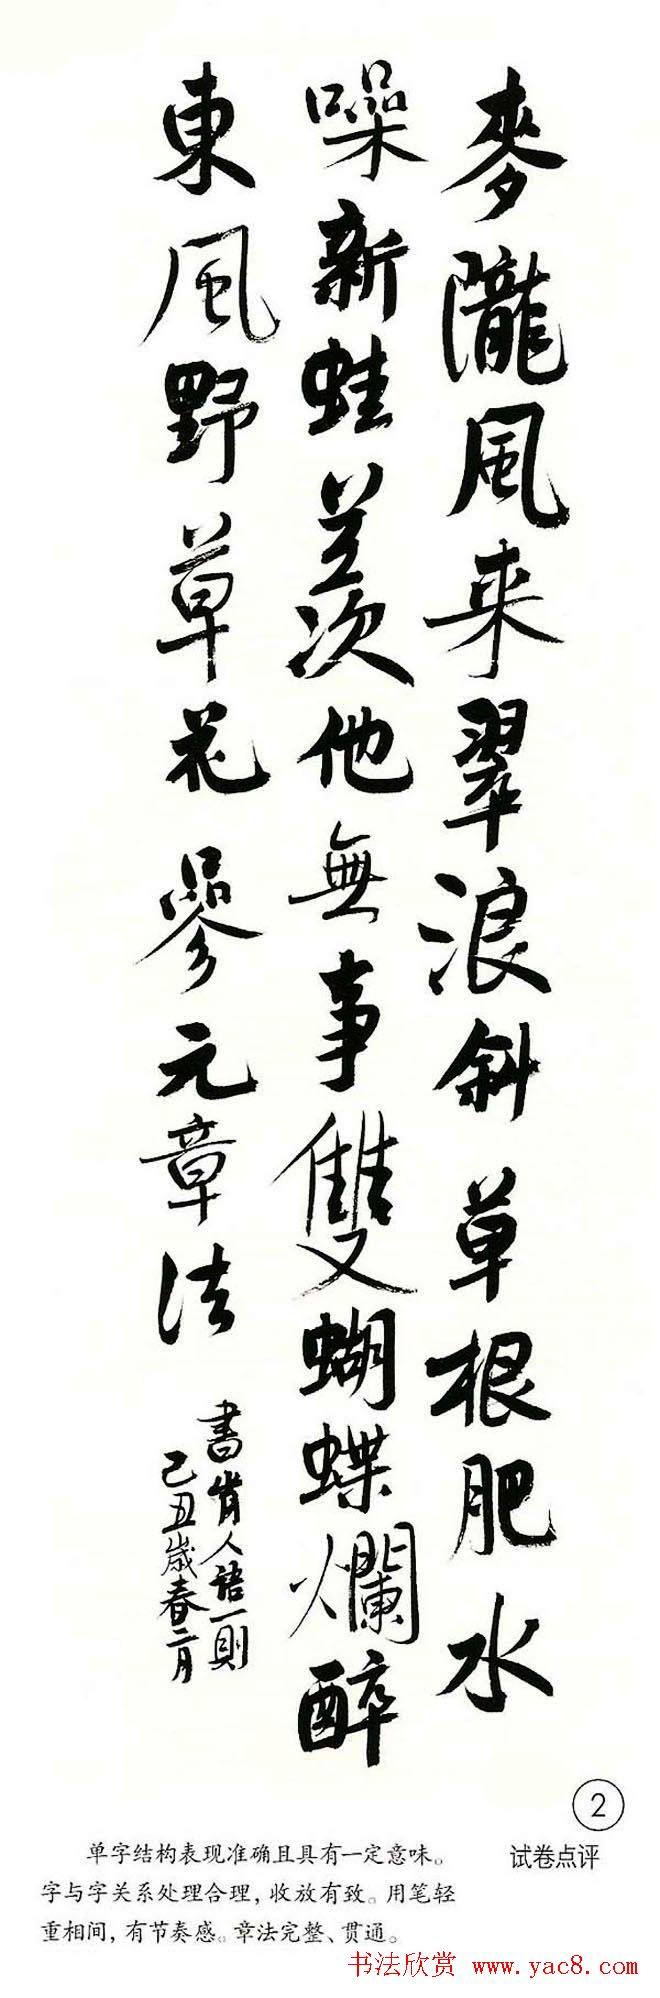 麥隴風来翠浪斜草根肥水
噪新蛙羨他無事雙蝴蝶爛醉
東風野草花 參元章法
書肯人語一則
己丑歲春二月
②
试卷点评
单字结构表现准确且具有一定意味。
字与字关系处理合理，收放有致。用笔轻
重相间，有节奏感。章法完整、贯通。
书法欣赏 www.yac8.com